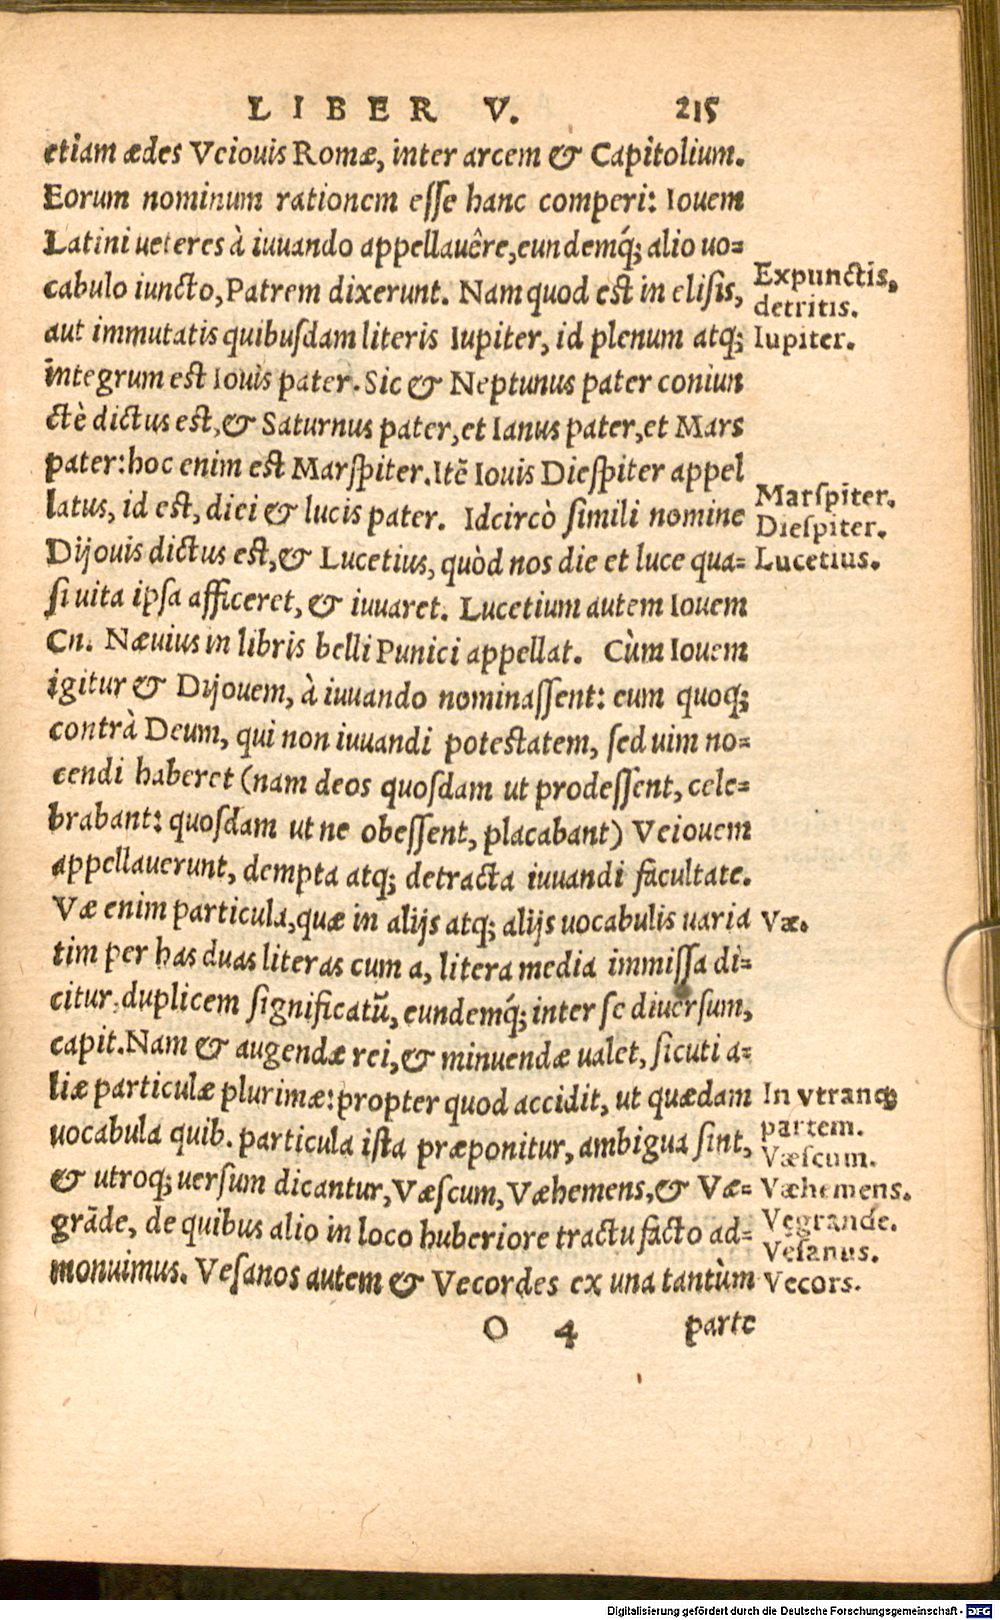 LIBER V. 215
etiam ædes Veiouis Romæ, inter arcem & Capitolium.
Eorum nominum rationem esse hanc comperi: Iouem
Latini ueteres à iuuando appellauêre, eundemq́; alio uo=
cabulo iuncto, Patrem dixerunt. Nam quod est in elisis,
Expunctis,
detritis.
aut immutatis quibusdam literis Iupiter, id plenum atq;
Iupiter.
integrum est Iouis pater. Sic & Neptunus pater coniun
ctè dictus est, & Saturnus pater, et Ianus pater, et Mars
pater: hoc enim est Marspiter. Itē Iouis Diespiter appel
latus, id est, diei & lucis pater. Idcircò simili nomine
Marspiter.
Diespiter.
Dijouis dictus est, & Lucetius, quòd nos die et luce qua=
Lucetius.
si uita ipsa afficeret, & iuuaret. Lucetium autem Iouem
Cn. Næuius in libris belli Punici appellat. Cùm Iouem
igitur & Dijouem, à iuuando nominassent: eum quoq;
contrà Deum, qui non iuuandi potestatem, sed uim no=
cendi haberet (nam deos quosdam ut prodessent, cele=
brabant: quosdam ut ne obessent, placabant) Veiouem
appellauerunt, dempta atq; detracta iuuandi facultate.
Væ enim particula, quæ in alijs atq; alijs uocabulis uaria
Væ.
tim per has duas literas cum a, litera media immissa di=
citur, duplicem significatū, eundemq́; inter se diuersum,
capit. Nam & augendæ rei, & minuendæ ualet, sicuti a=
liæ particulæ plurimæ: propter quod accidit, ut quædam
In vtranq;
partem.
uocabula quib. particula ista præponitur, ambigua sint,
Væscum.
& utroq; uersum dicantur, Væscum, Væhemens, & Væ=
Væhemens.
grāde, de quibus alio in loco huberiore tractu facto ad=
Vegrande.
Vesanus.
monuimus. Vesanos autem & Vecordes ex una tantùm
Vecors.
O 4 parte
Digitalisierung gefördert durch die Deutsche Forschungsgemeinschaft - DFG